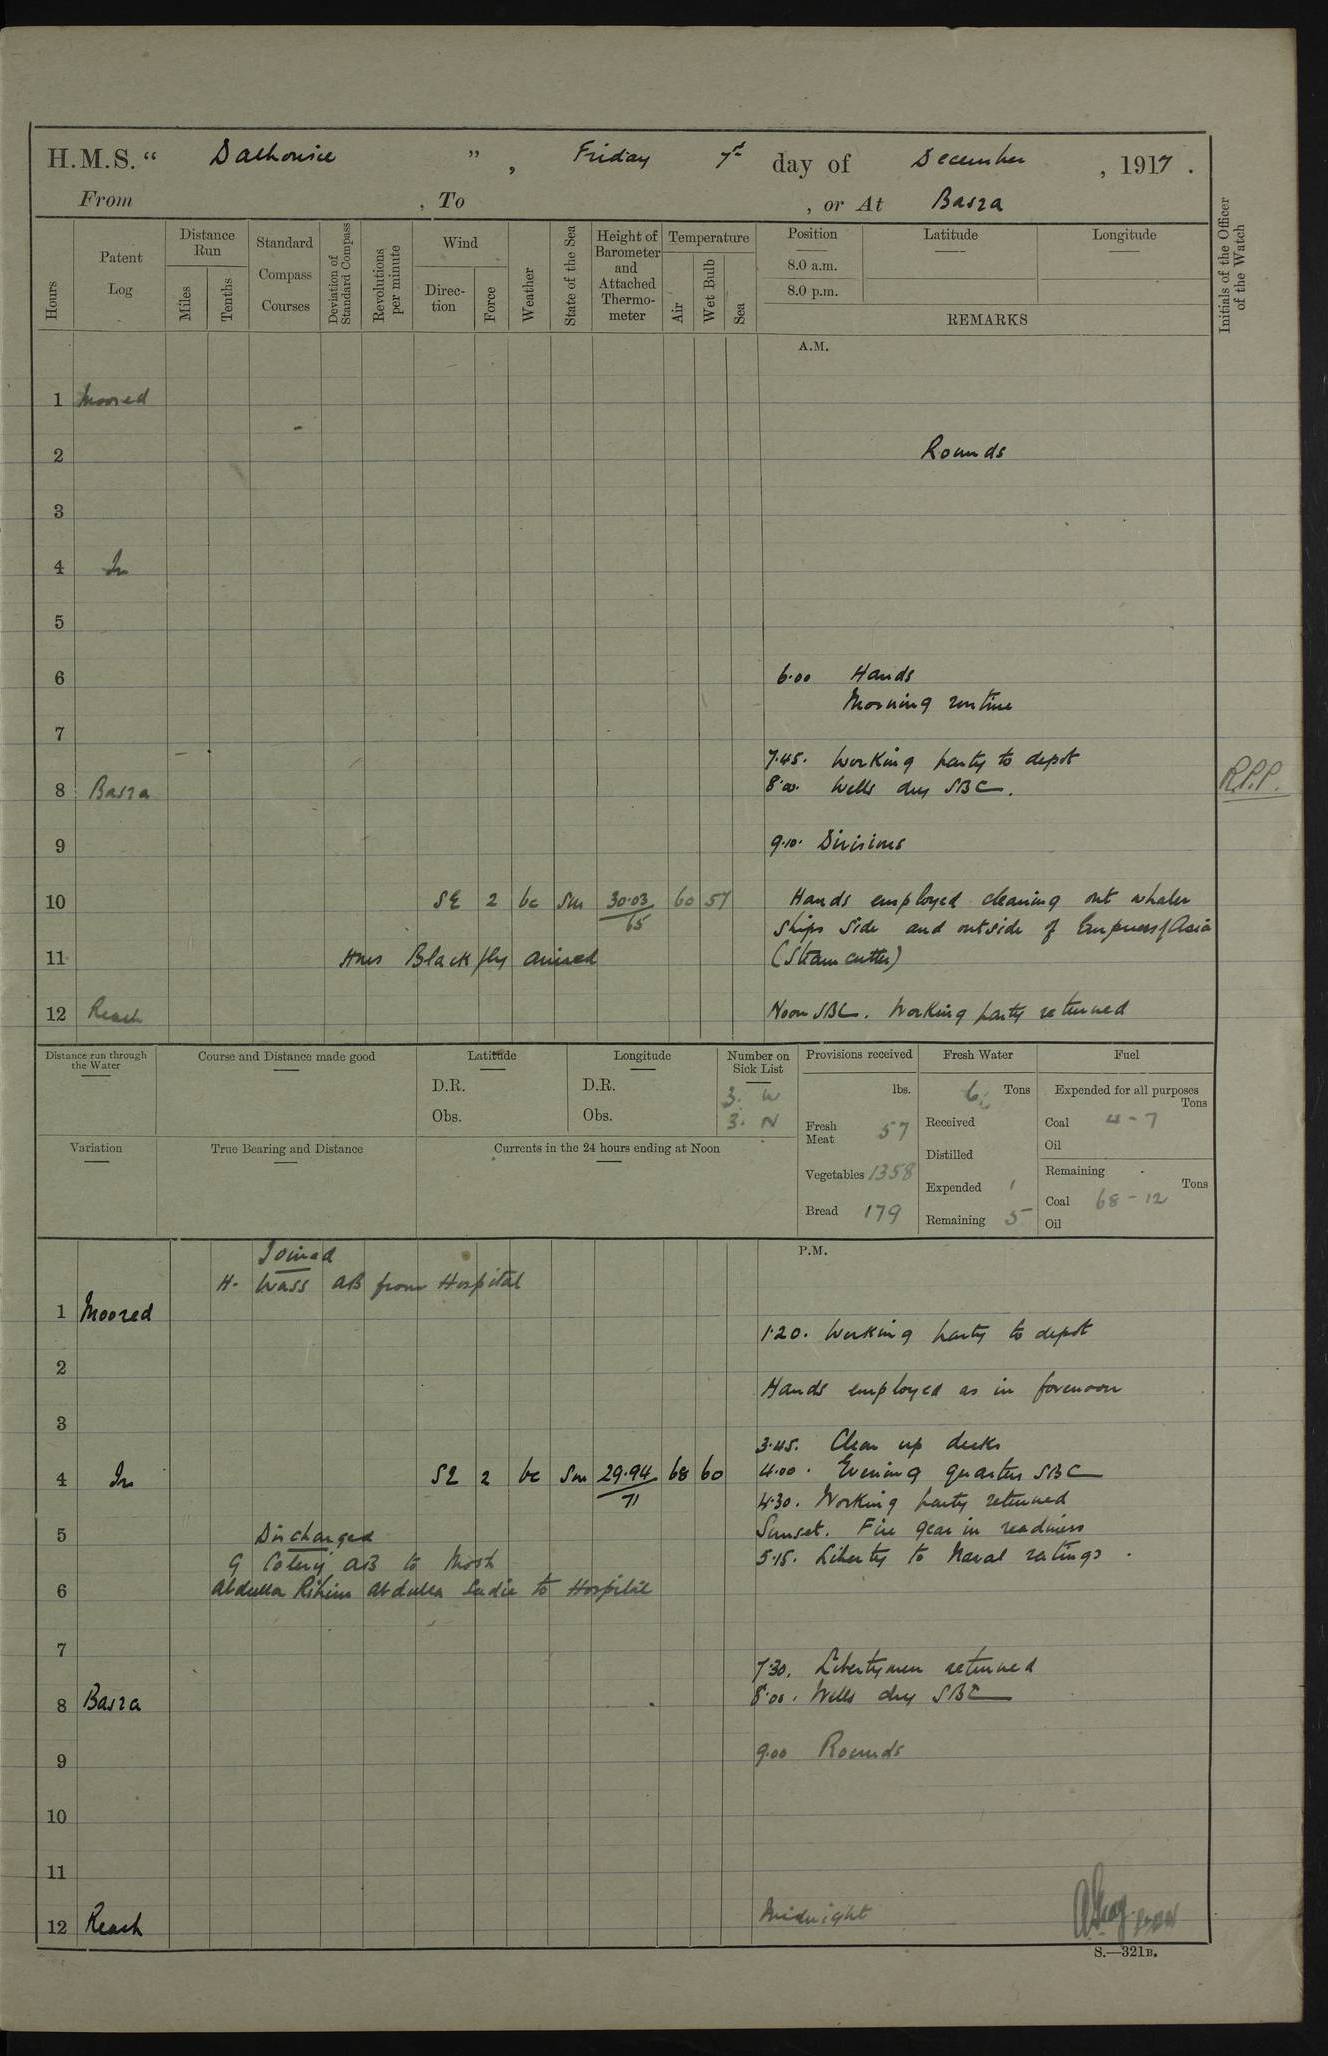 H.M.S. “ Dalhousie ” , Friday 7th day of December , 1917 .
From , To , or At Basra
Hours
Patent Log
Distance Run
Miles
Tenths
Standard Compass Courses
Deviation of Standard Compass
Revolutions per minute
Wind
Direction
Force
Weather
State of the Sea
Height of Barometer and Attached Thermometer
Temperature
Air
Wet Bulb
Sea
Position
8.0 a.m.
8.0 p.m.
Latitude
Longitude
REMARKS
Initials of the Officer of the Watch
A.M.
1 Moored
2 Rounds
3
4 In
5
6 6.00 Hands
Morning routine
7
7.45. Working party to depot
8 Basra 8.00. Wells dry SBC. R.P.P.
9 9.10. Divisions
10 SE 2 bc Sm 30.03 60 57 Hands employed cleaning out whaler
65 Ships side and outside of Empress/Asia
11 HMS Blackfly arrived (Steam cutter)
12 Reach Noon SBC. Working party returned
Distance run through the Water
Course and Distance made good
Latitude
D.R.
Obs.
Longitude
D.R.
Obs.
Number on Sick List
3. W
3. N
Provisions received
lbs.
Fresh Meat 57
Vegetables 1358
Bread 179
Fresh Water
6 Tons
Received
Distilled
Expended 1
Remaining 5
Fuel
Expended for all purposes
Tons
Coal 4-7
Oil
Remaining
Tons
Coal 68-12
Oil
Variation
True Bearing and Distance
Currents in the 24 hours ending at Noon
P.M.
Joined
H. Wass AB from Hospital
1 Moored
1.20. Working party to depot
2
Hands employed as in forenoon
3
3.45. Clear up decks
4 In SE 2 bc Sm 29.94 68 60 4.00. Evening quarters SBC
71 4.30. Working party returned
5 Discharged Sunset. Fire gear in readiness
G AB to 5.15. Liberty to Naval ratings.
6 Abdulla Abdulla to Hospital
7
7.30. Libertymen returned
8 Basra 8.00. Wells dry SBC
9 9.00 Rounds
10
11
12 Reach Midnight
S.—321B.